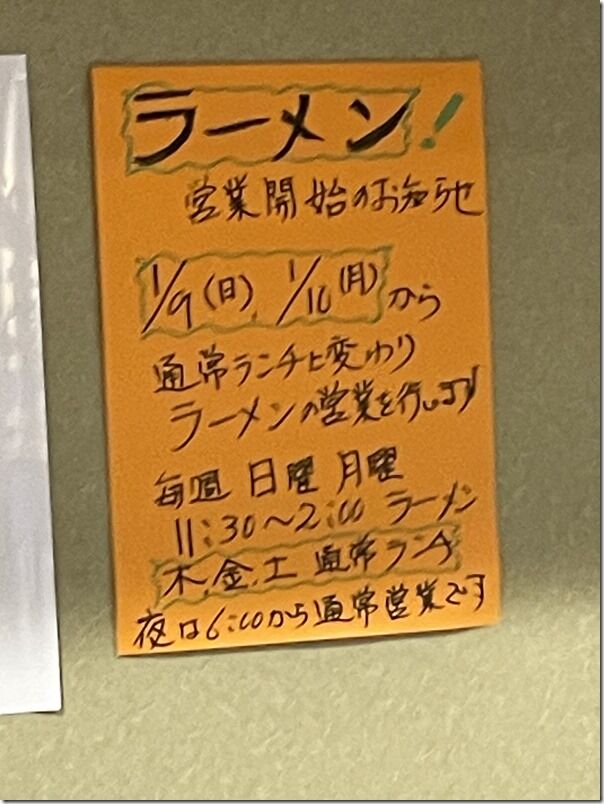 ラーメン!
営業開始のお知らせ
1/9(日)、1/10(月)から
通常ランチと変わり
ラーメンの営業を行います
毎週 日曜 月曜
11:30〜2:00 ラーメン
木、金、土 通常ランチ
夜は6:00から通常営業です